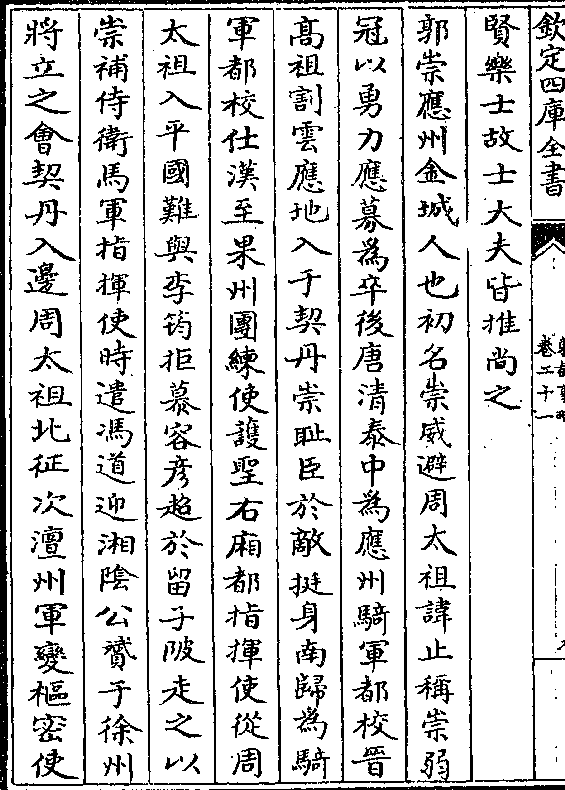 欽定四庫全書
卷二十一
賢樂士故士大夫皆推尚之
郭崇應州金城人也初名崇威避周太祖諱止稱崇弱
冠以勇力應募為卒後唐清泰中為應州騎軍都校晉
高祖割雲應地入于契丹崇恥臣於敵挺身南歸為騎
軍都校仕漢至果州團練使護聖右廂都指揮使從周
太祖入平國難與李筠拒慕容彥超於留子陂走之以
崇補侍衛馬軍指揮使時遣馮道迎湘陰公贇于徐州
將立之會契丹入邊周太祖北征次澶州軍變樞密使